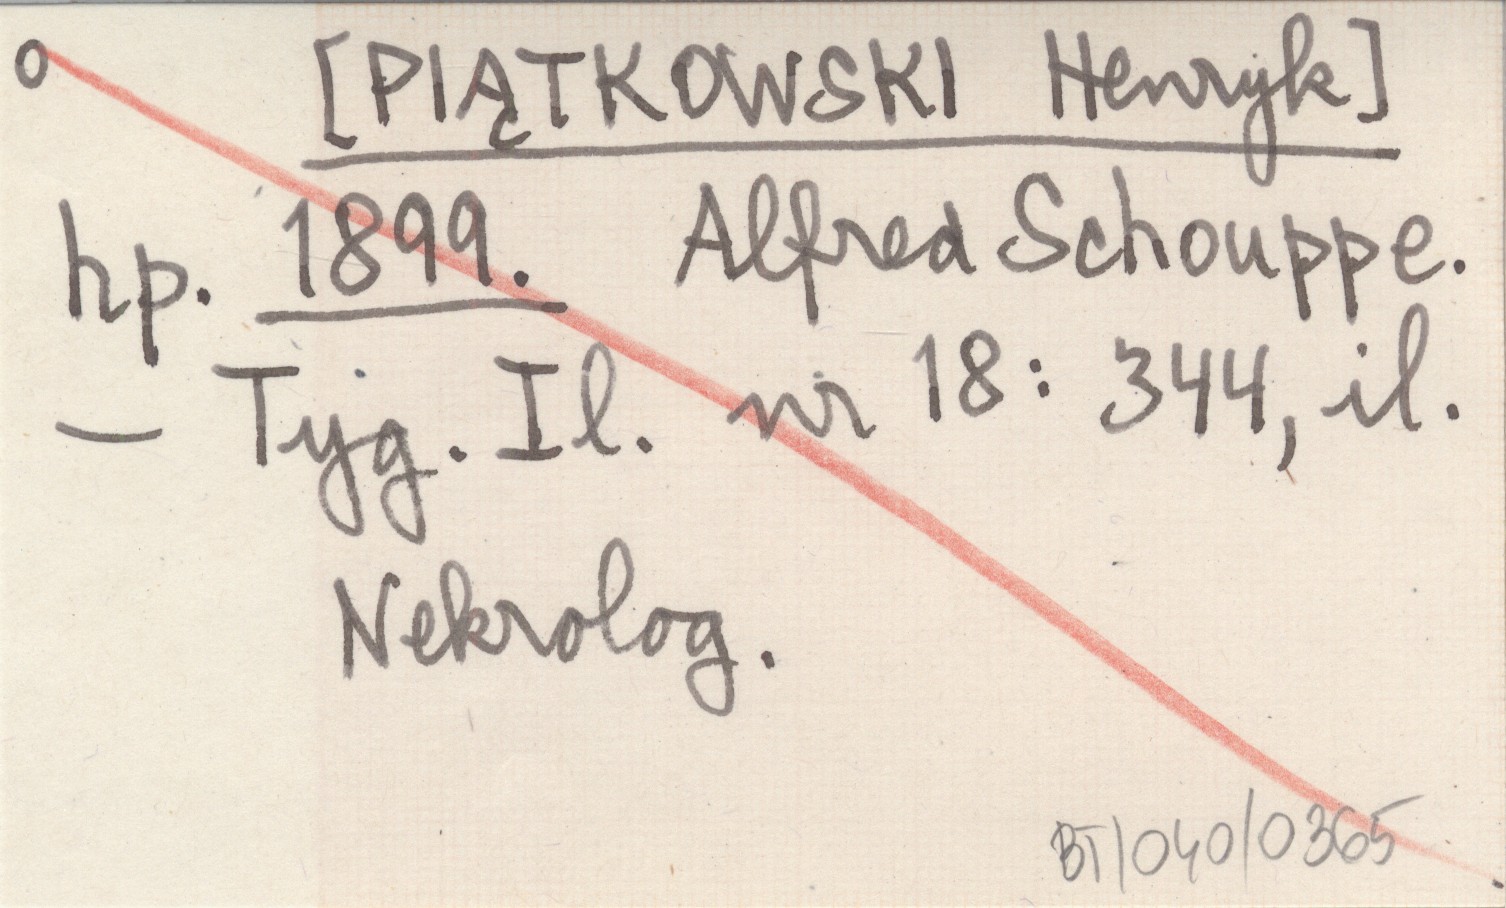 o [PIĄTKOWSKI Henryk]
hp. 1899. Alfred Schouppe.
— Tyg. Il. nr 18: 344, il.
Nekrolog.
BT/040/0365